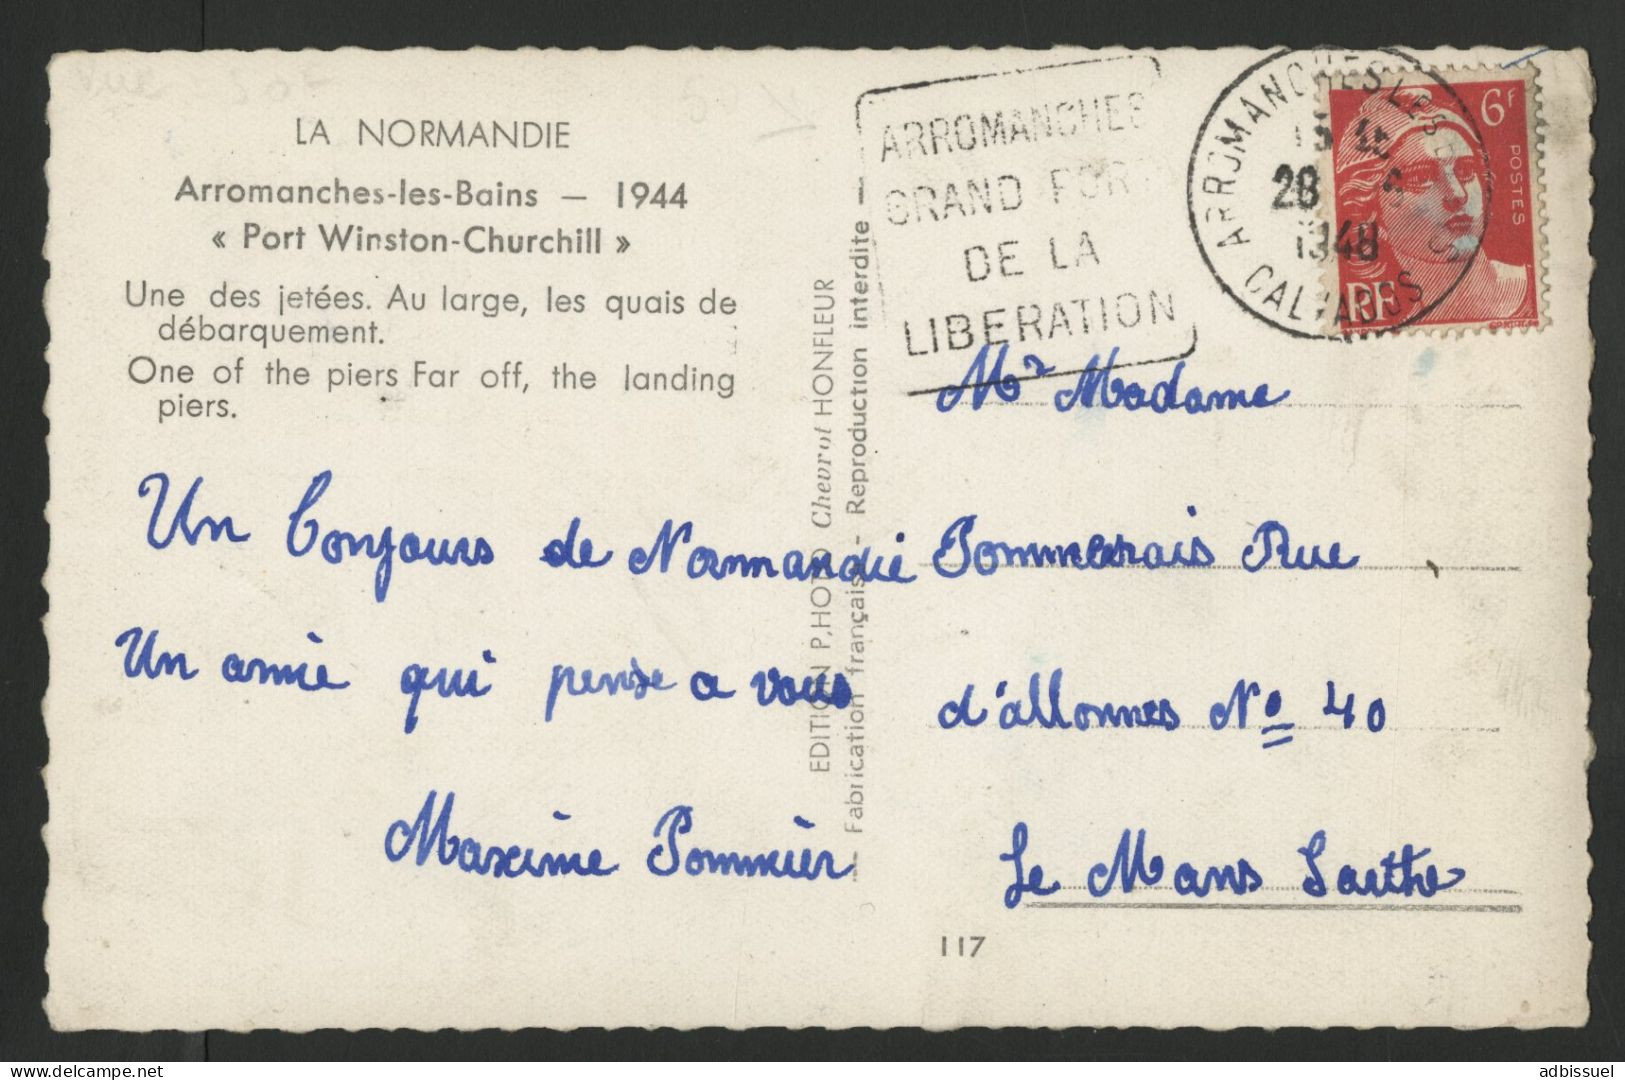 LA NORMANDIE
Arromanches-les-Bains — 1944
« Port Winston-Churchill »
Une des jetées. Au large, les quais de
débarquement.
One of the piers Far off, the landing
piers.
Un bonjours de Normandie
Un amie qui pense a vous
Maxime Pommier
EDITION P,HOTO Chevrot HONFLEUR
— Fabrication française - Reproduction interdite —
ARROMANCHES
GRAND PORT
DE LA
LIBERATION
ARROMANCHES-LES-BAINS
28
1948
CALVADOS
6F
POSTES
RF
Mr Madame
Pommerais Rue
d'allonnes No 40
Le Mans Sarthe
117
adbissuel